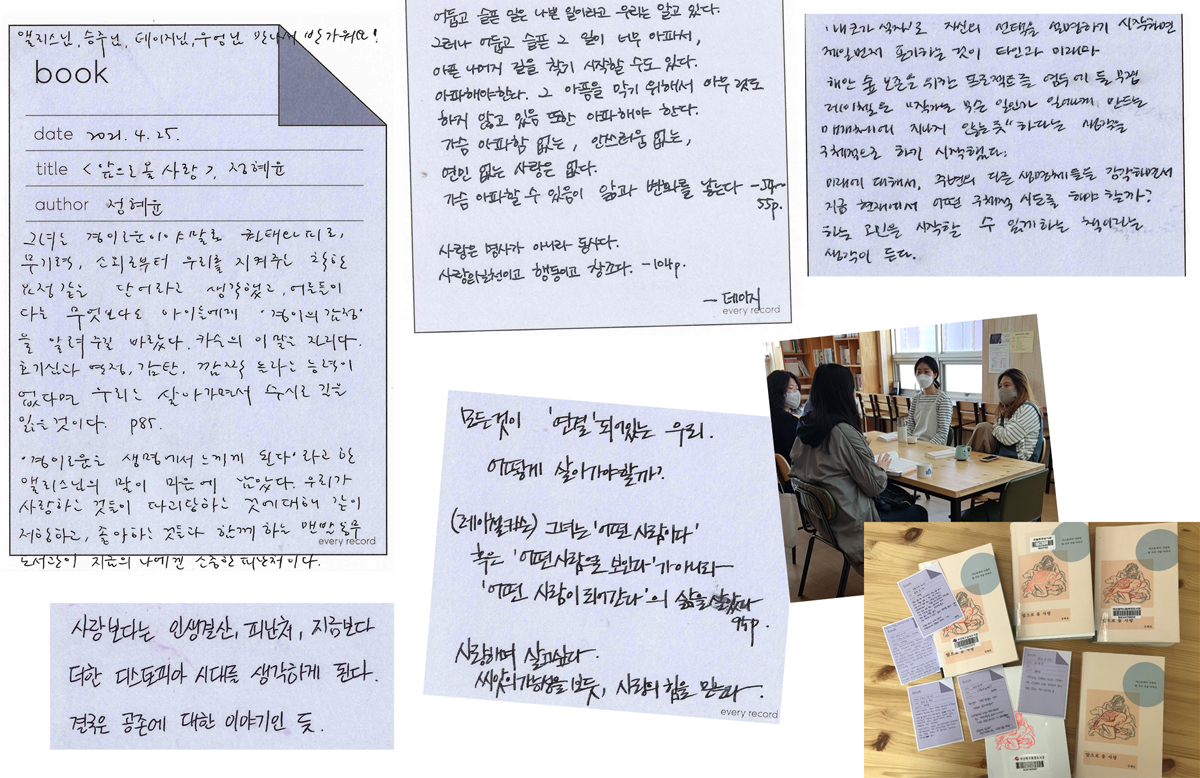 앨리스님, 승주님, 데이지님, 우영님 만나서 반가워요!
book
date 2021. 4. 25.
title <앞으로 올 사랑>, 정혜윤
author 정혜윤
그녀는 경이로움이야말로 권태와 피로,
무기력, 소외로부터 우리를 지켜주는 착한
요정같은 단어라고 생각했고, 어른들이
다른 무엇보다도 아이들에게 '경이의 감정'
을 알려주길 바랐다. 카슨의 이 말은 진리다.
호기심과 열정, 감탄, 깜짝 놀라는 능력이
없다면 우리는 살아가면서 수시로 길을
잃을 것이다. p85.
'경이로움을 생명에서 느끼게 된다'라고 한
앨리스님의 말이 마음에 남았다. 우리가
사랑하는 것들이 다리 역할하는 것에 대해 같이
하고, 좋아하는 것들과 함께 하는 맨발동무
도서관이 지금의 나에겐 소중한 피난처이다.
every record
사랑보다는 인생결산, 피난처, 지금보다
더한 디스토피아 시대를 생각하게 된다.
결국은 공존에 대한 이야기인 듯.
어둡고 슬픈 일은 나쁜 일이라고 우리는 알고 있다.
그러나 어둡고 슬픈 그 일이 너무 아파서,
아픈 나머지 길을 찾기 시작할 수도 있다.
아파해야한다. 그 아픔을 막기 위해서 아무 것도
하지 않고 있음 또한 아파해야 한다.
가슴 아파함 없는, 안쓰러움 없는,
연민 없는 사랑은 없다.
가슴 아파할 수 있음이 앎과 변화를 낳는다 -54~
55p.
사랑은 명사가 아니라 동사다.
사랑은 실천이고 행동이고 창조다. -104p.
- 데이지
every record
모든것이 '연결'되어있는 우리.
어떻게 살아가야할까?
(레이첼카슨) 그녀는 '어떤 사람이다'
혹은 '어떤 사람으로 보인다'가 아니라
'어떤 사람이 되어간다'의 삶을 살았다
95p.
사랑하며 살고싶다.
씨앗의 가능성을 보듯, 사랑의 힘을 믿는다.
every record
'내 코가 석자'로 자신의 선택을 설명하기 시작하면
제일먼저 포기하는 것이 타인과 미래다
해안 숲 보존을 위한 프로젝트를 염두에 둘 무렵
레이첼은 "작가는 무슨 일인가 일어나게 만드는
매개체에 지나지 않는 듯"하다는 생각을
구체적으로 하기 시작했다.
미래에 대해서, 주변의 다른 생명체들을 감각하면서
지금 현재에서 어떤 구체적 시도를 해야 할까?
하는 고민을 시작할 수 있게하는 책이라는
생각이 든다.
앞으로 올 사랑
앞으로 올 사랑
앞으로 올 사랑
앞으로 올 사랑